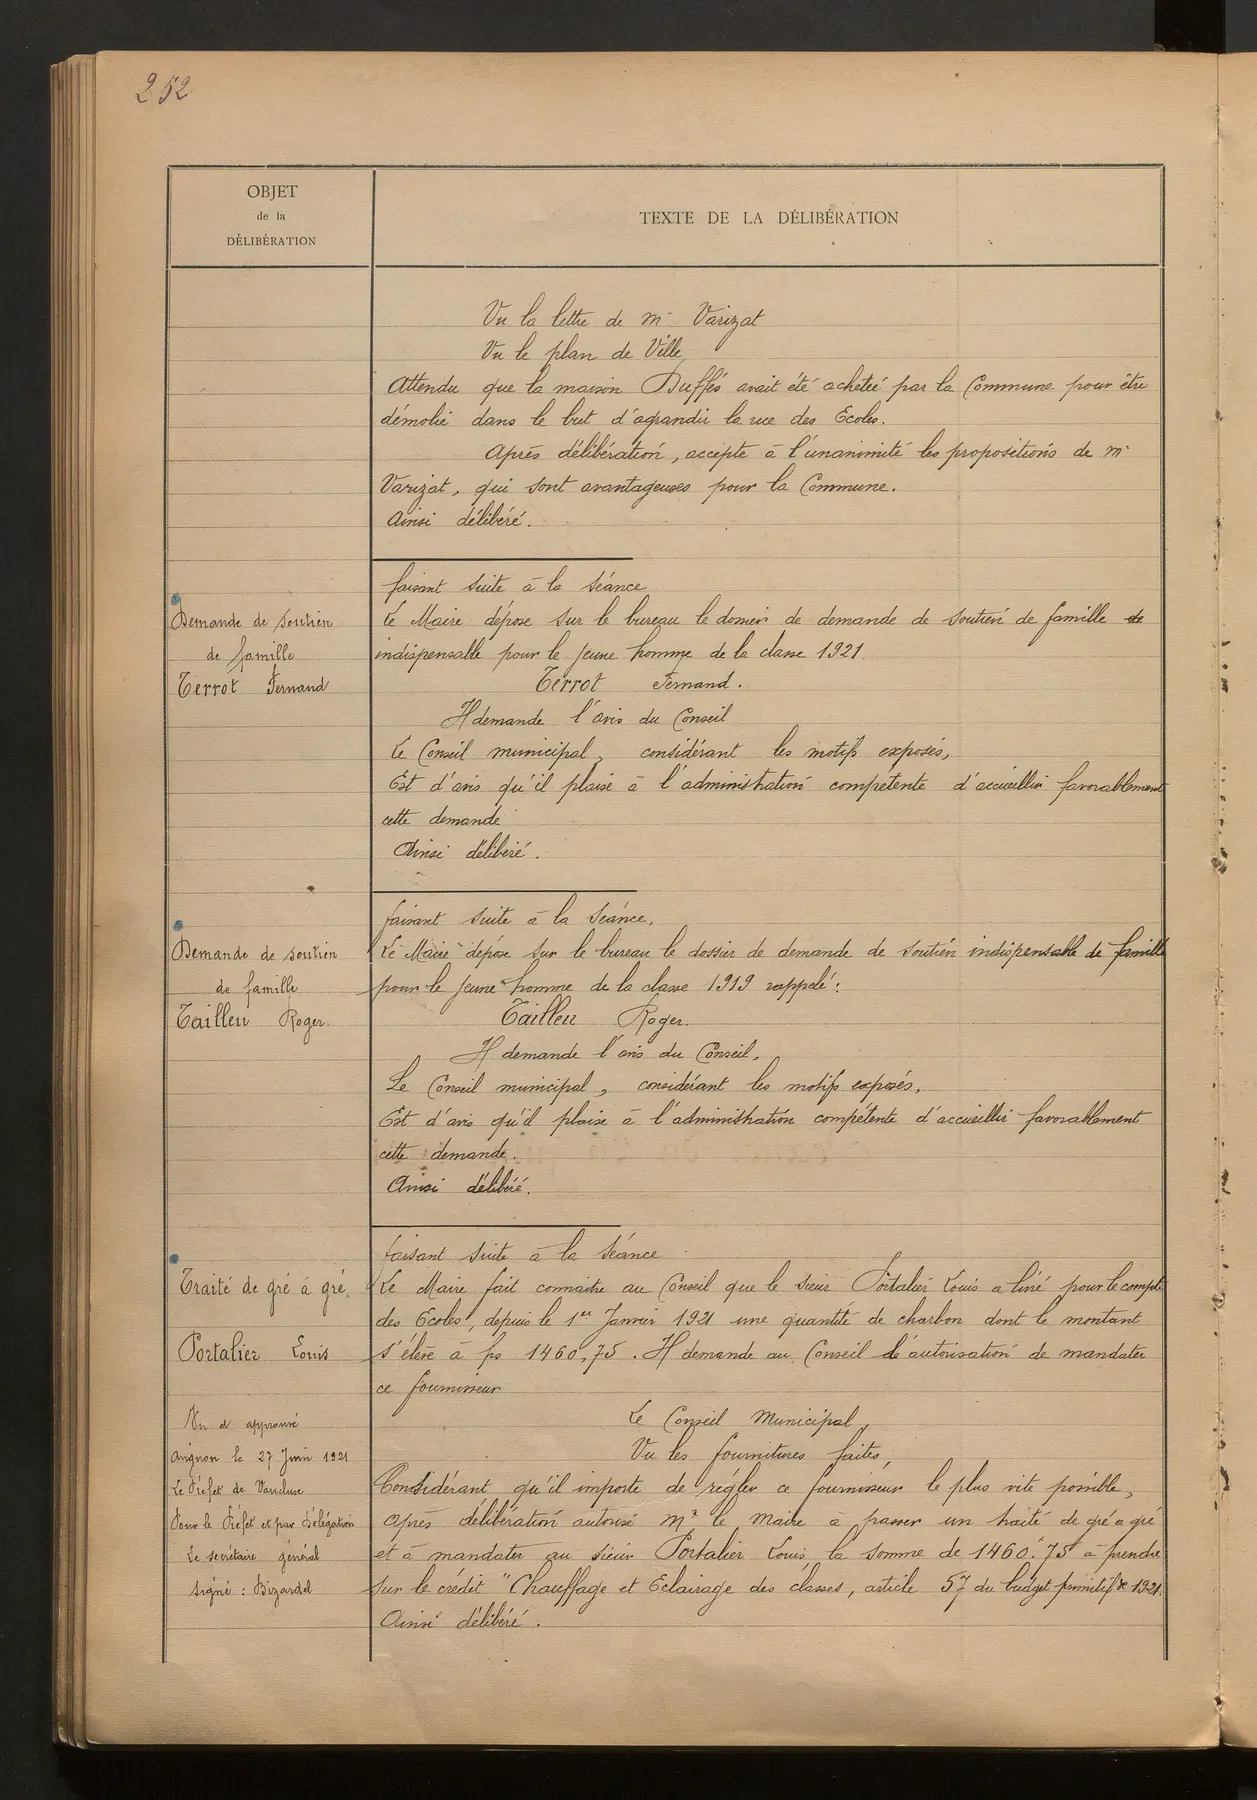 252
OBJET
de la
DÉLIBÉRATION
TEXTE DE LA DÉLIBÉRATION
Vu la lettre de Mr Varizat
Vu le plan de Ville,
Attendu que la maison Duffés avait été achetée par la Commune pour être
démolie dans le but d'agrandir la rue des Ecoles.
Après délibération, accepte à l'unanimité les propositions de Mr
Varizat, qui sont avantageuses pour la Commune.
Ainsi délibéré.
Demande de soutien
de famille
Terrot Fernand
faisant suite à la séance
Le Maire dépose sur le bureau le dossier de demande de soutien de famille de
indispensable pour le jeune homme de la classe 1921
Terrot Fernand.
Il demande l'avis du Conseil
Le Conseil municipal, considérant les motifs exposés,
Est d'avis qu'il plaise à l'administration compétente d'accueillir favorablement
cette demande
Ainsi délibéré.
Demande de soutien
de famille
Tailleu Roger.
faisant suite à la séance,
Le Maire dépose sur le bureau le dossier de demande de soutien indispensable de famille
pour le jeune homme de la classe 1919 rappelé :
Tailleu Roger.
Il demande l'avis du Conseil,
Le Conseil municipal, considérant les motifs exposés,
Est d'avis qu'il plaise à l'administration compétente d'accueillir favorablement
cette demande.
Ainsi délibéré.
Traité de gré à gré
Portalier Louis
faisant suite à la séance
Le Maire fait connaitre au Conseil que le sieur Portalier Louis a livré pour le compte
des Ecoles, depuis le 1er Janvier 1921 une quantité de charbon dont le montant
s'élève à frs 1460,75. Il demande au Conseil l'autorisation de mandater
ce fournisseur
Le Conseil Municipal,
Vu les fournitures faites,
Considérant qu'il importe de régler ce fournisseur le plus vite possible,
Après délibération autorise Mr le Maire à passer un traité de gré à gré
et à mandater au sieur Portalier Louis, la somme de 1460.75 à prendre
sur le crédit "Chauffage et Eclairage des classes, article 57 du budget primitif de 1921.
Ainsi délibéré.
Vu et approuvé
Avignon le 27 Juin 1921
Le Préfet de Vaucluse
Pour le Préfet et par Délégation
Le secrétaire général
Signé : Bizardel